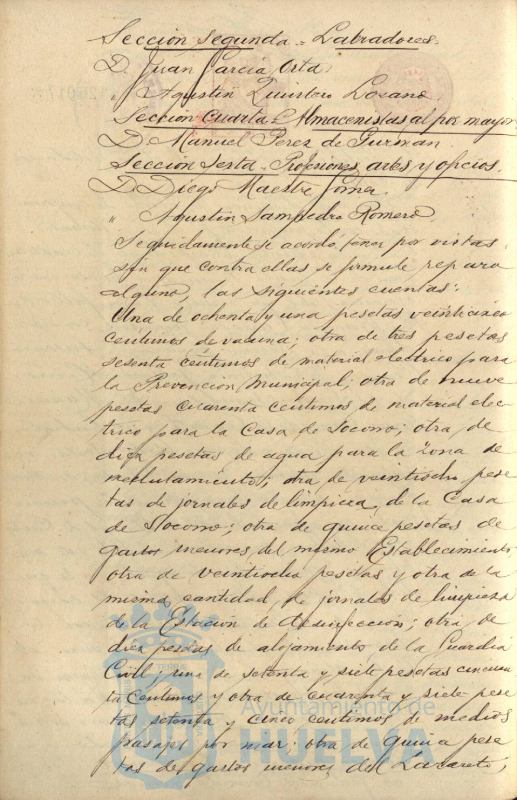 Sección segunda = Labradores.
D. Juan García Orta.
" Agustín Quintero Lozano.
Sección Cuarta = Almacenistas al por mayor
D. Manuel Perez de Guzman.
Sección sexta = Profesiones, artes y oficios.
D. Diego Maestre
" Agustin Sampedro Romero
Seguidamente se acordó tener por vistas
sin que contra ellas se formule reparo
alguno, las siguientes cuentas:
Una de ochenta y una pesetas veinticinco
centimos de vacuna; otra de tres pesetas
sesenta céntimos de material electrico para
la Prevencion Municipal; otra de nueve
pesetas cuarenta centimos de material elec-
trico para la Casa de Socorro; otra de
diez pesetas de agua para la Zona de
reclutamiento; otra de veintiocho pese
tas de jornales de limpieza de la Casa
de Socorro; otra de quince pesetas de
gastos menores del mismo Establecimiento
otra de veintiocho pesetas y otra de la
misma cantidad de jornales de limpieza
de la Estacion de Desinfección; otra de
diez pesetas de alojamiento de la Guardia
Civil; una de setenta y siete pesetas cincuen
ta centimos y otra de cuarenta y siete pese
tas setenta y cinco centimos de medios
pasajes por mar; otra de quince pese
tas de gastos menores del Lazareto;
Ayuntamiento de
HUELVA